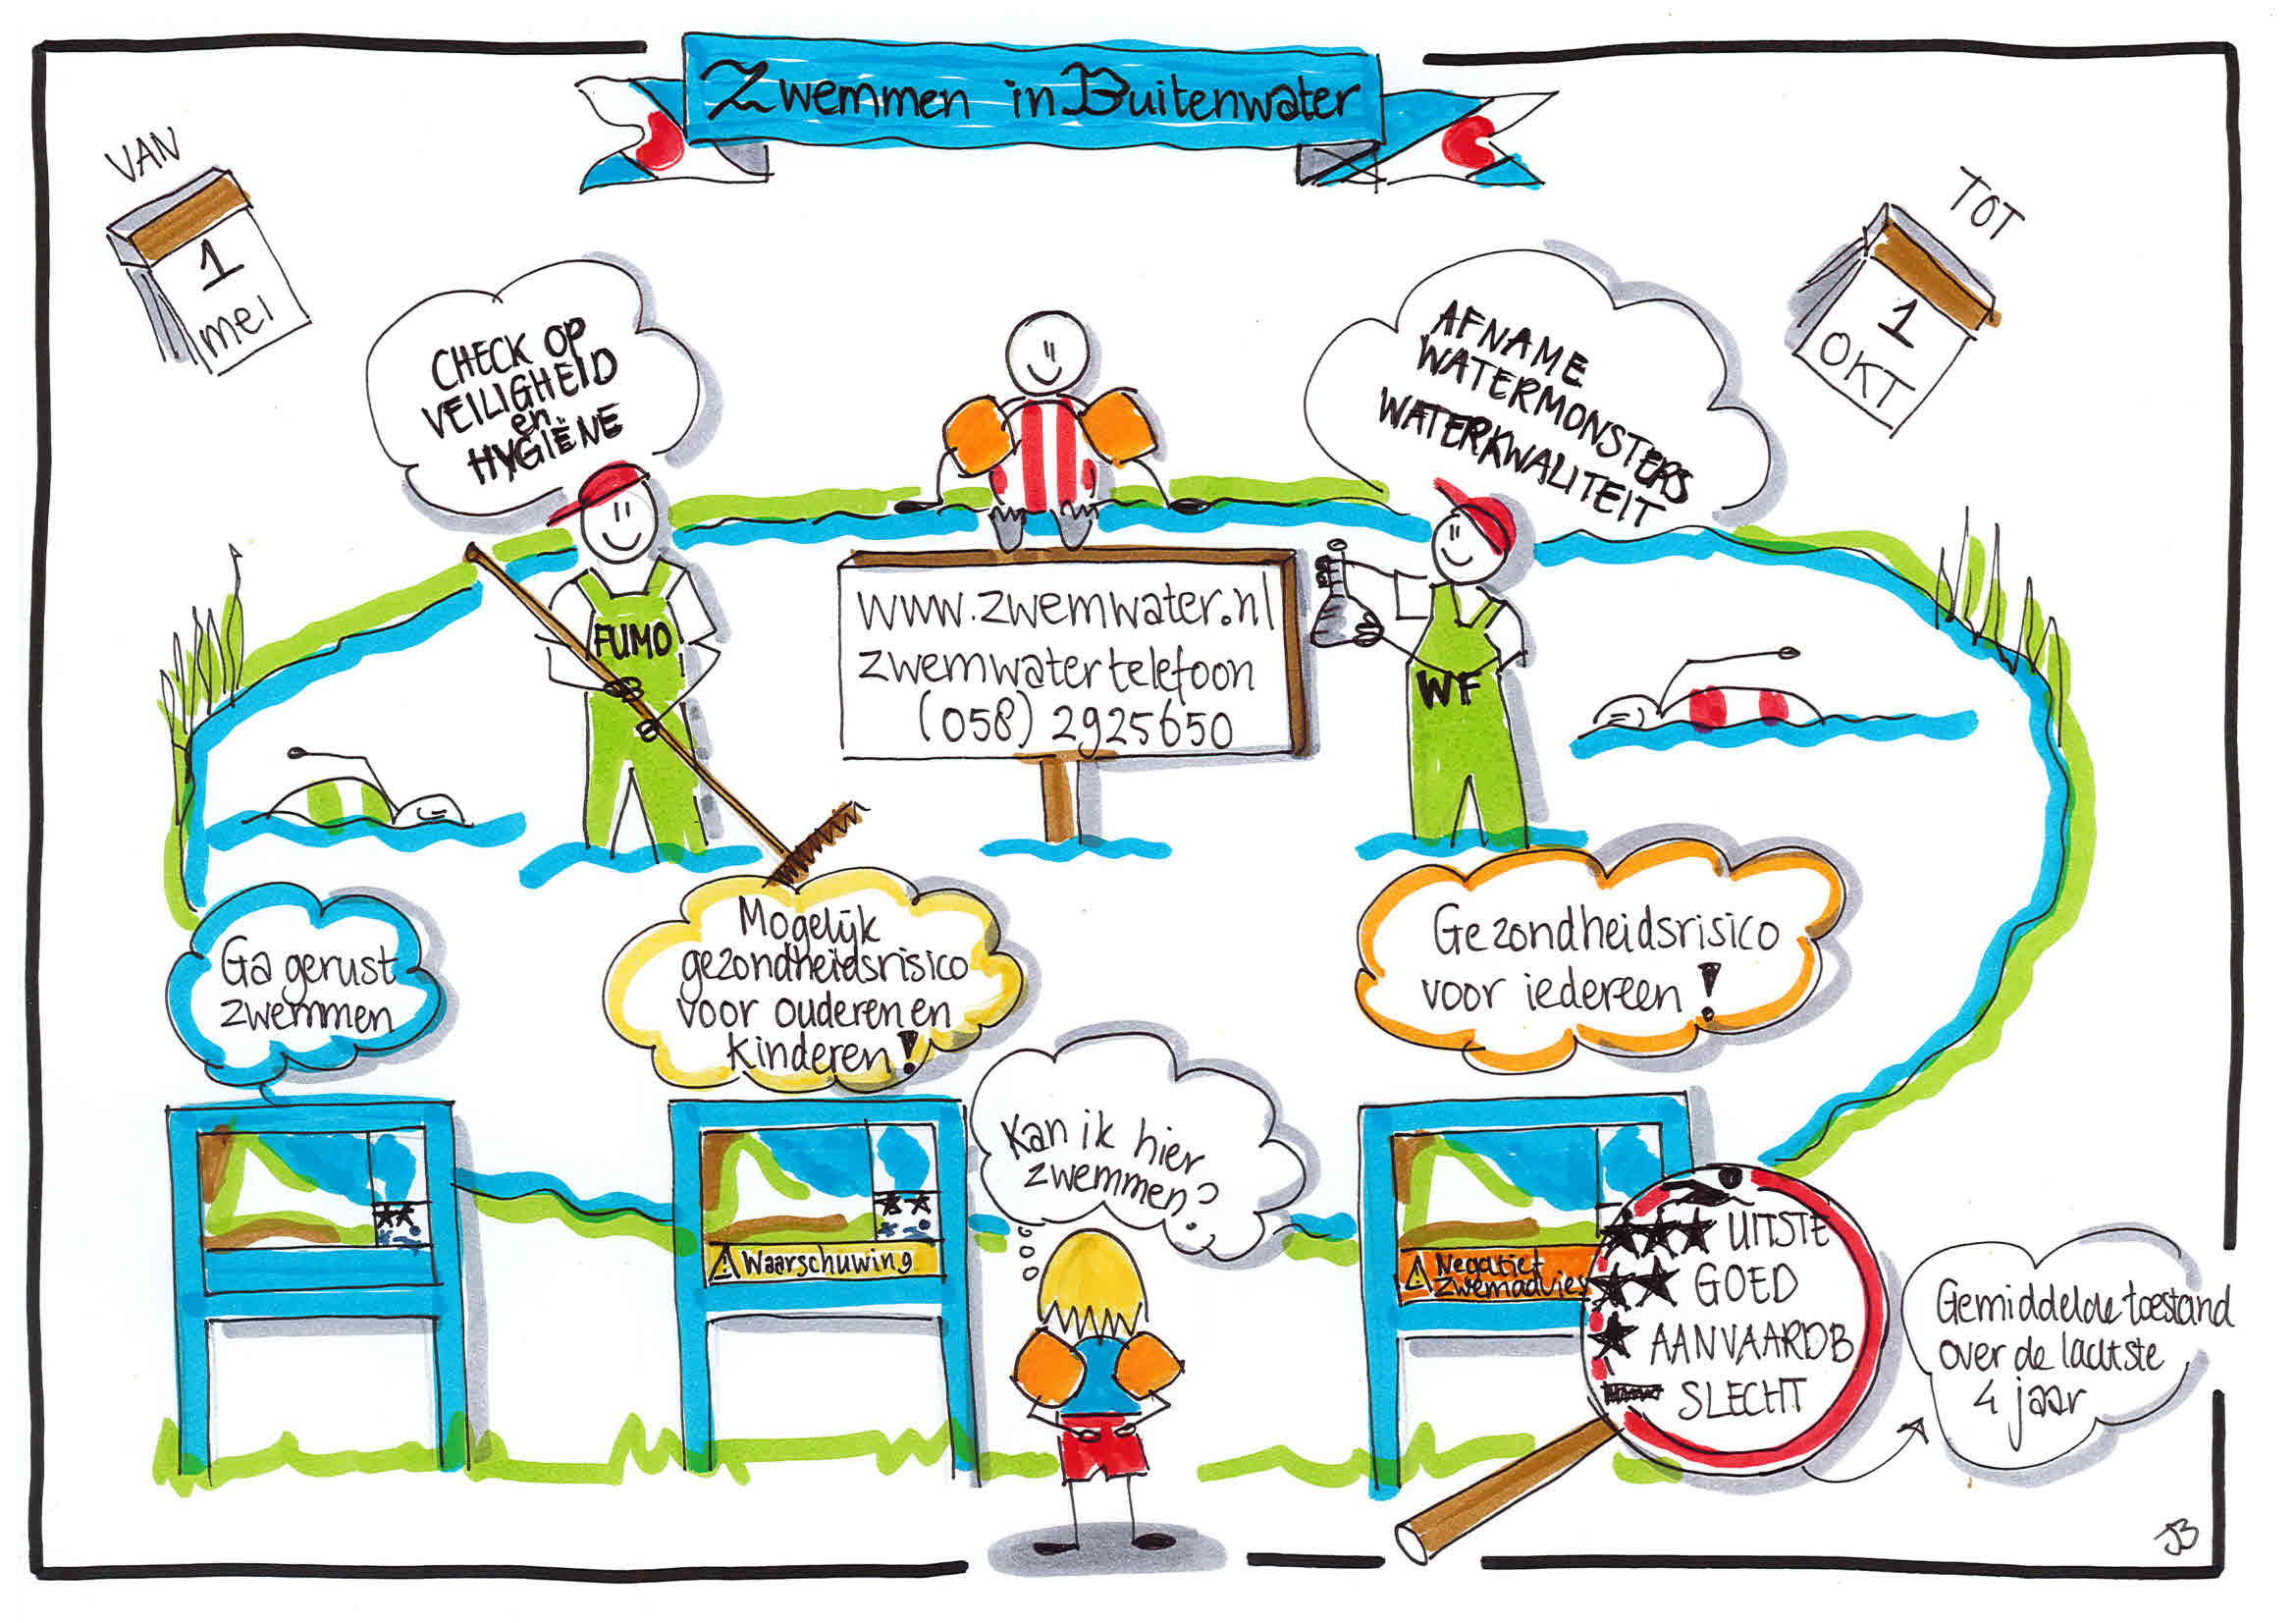 Zwemmen in Buitenwater
VAN
1
mei
TOT
1
OKT
CHECK OP
VEILIGHEID
en
HYGIËNE
AFNAME
WATERMONSTERS
WATERKWALITEIT
FUMO
www.zwemwater.nl
zwemwatertelefoon
(058) 2925650
WF
Ga gerust
zwemmen
Mogelijk
gezondheidsrisico
voor ouderen en
kinderen!
Gezondheidsrisico
voor iedereen!
Kan ik hier
zwemmen?
Waarschuwing
Negatief
zwemadvies
UITSTE
GOED
AANVAARDB
SLECHT
Gemiddelde toestand
over de laatste
4 jaar
JB